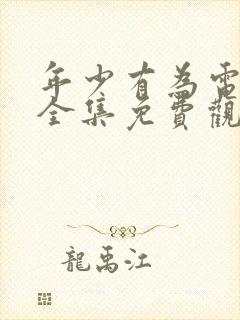 年少有為電
全集免費觀
龍禹江